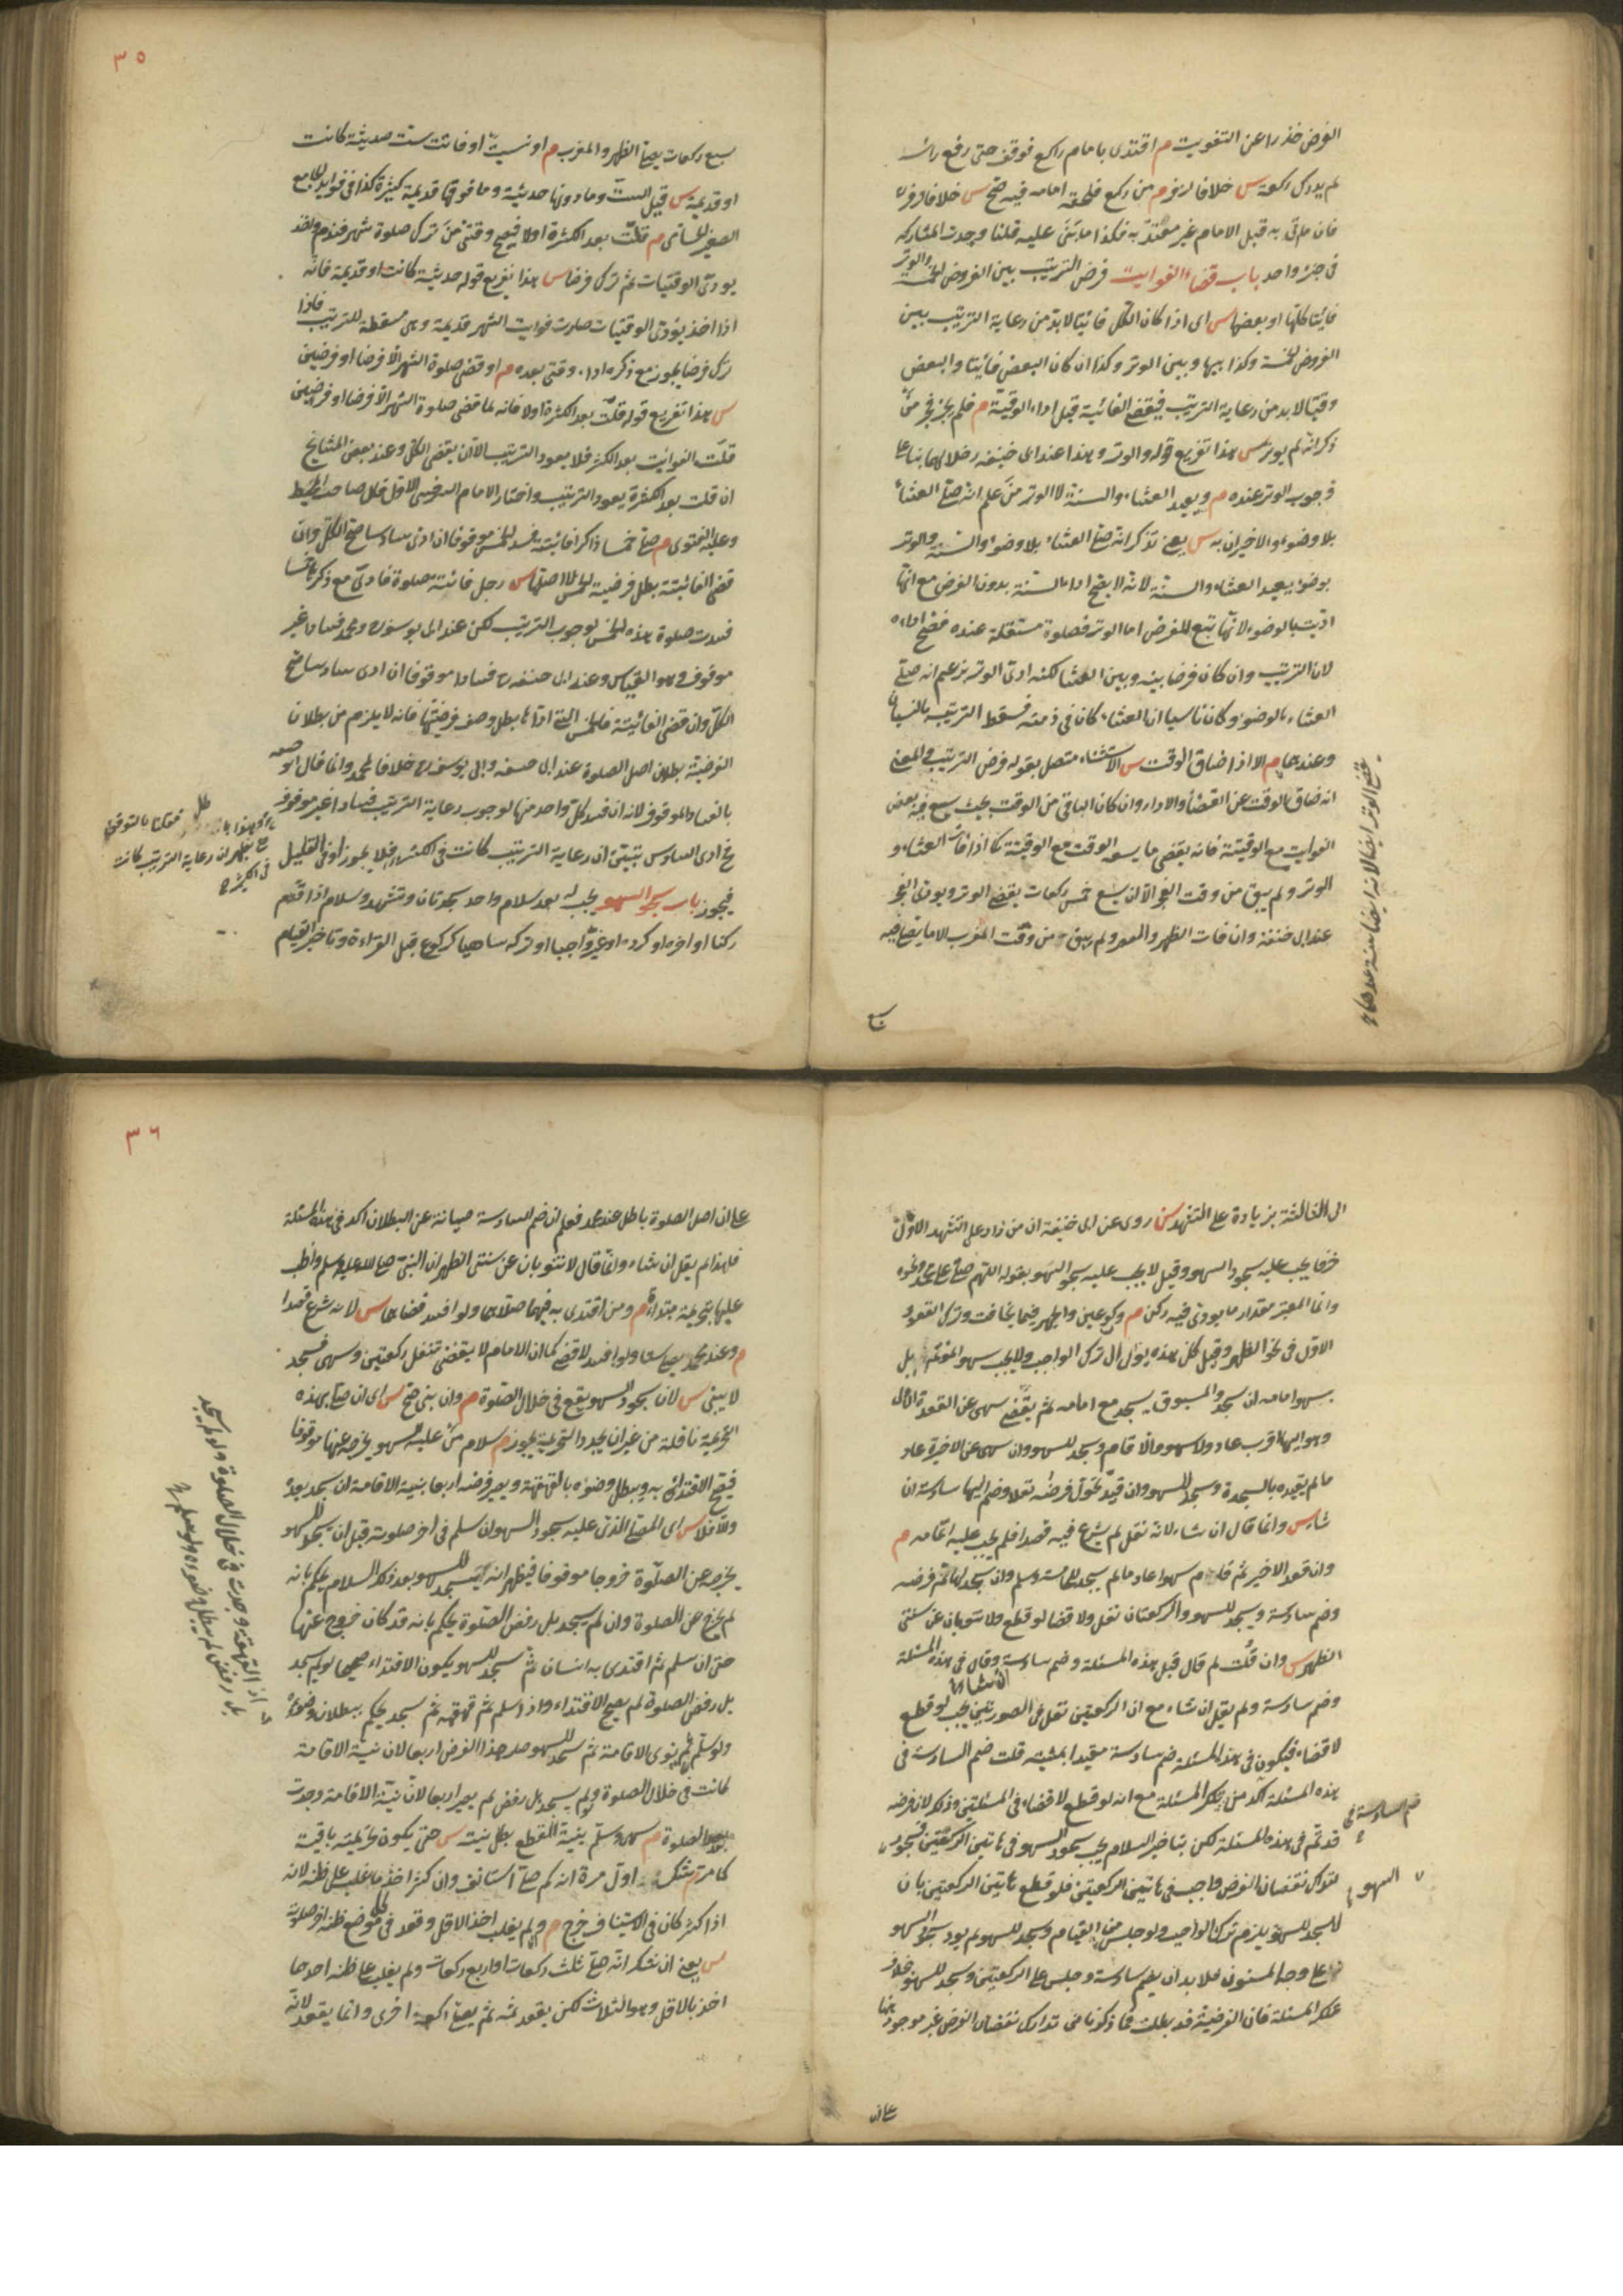 الفرض حذرا عن التفويت م اقتدى بامام راكع فوقف حتى رفع رأسه
لم يدرك ركعة س خلافا لزفر م من ركع فلحقه امامه فيه صح س خلافا لزفر
فان ما اتى به قبل الامام غير معتد به فكذا ما بنى عليه قلنا وجدت المشاركة
فى جزء واحد باب قضاء الفوايت فرض الترتيب بين الفروض الخمسة والوتر
فائتا كلها او بعضها س اى اذا كان الكل فائتا لابد من رعاية الترتيب بين
الفروض الخمسة وكذا بينها وبين الوتر وكذا ان كان البعض فائتا والبعض
وقتيا لابد من رعاية الترتيب فيقضى الفائتة قبل اداء الوقتية م فلم يجز فجر من
ذكر انه لم يوتر س هذا تفريع قوله والوتر وهذا عند ابى حنيفه خلافا لهما بناء على
وجوب الوتر عنده م ويعيد العشاء والسنة لا الوتر من علم انه صلى العشاء
بلا وضوء والاخيران به س يعنى تذكر انه صلى العشاء بلا وضوء والسنة والوتر
بوضوء يعيد العشاء والسنة لانه لا يصح اداء السنة بدون الفرض مع انها
اديت بالوضوء لانها تبع للفرض اما الوتر فصلوة مستقلة عنده فصح اداءه
لان الترتيب وان كان فرضا بينه وبين العشا لكنه ادى الوتر بزعم انه صلى
العشاء بالوضوء وكان ناسيا ان العشاء كان فى ذمته فسقط الترتيب بالنسيان
وعندهما م الا اذا ضاق الوقت س الاستثناء متصل بقوله فرض الترتيب والمعنى
انه ضاق الوقت عن القضاء والاداء وان كان الباقى من الوقت بحيث يسع فيه بعض
الفوايت مع الوقتية فانه يقضى ما يسعه الوقت مع الوقتية كما اذا فات العشاء و
الوتر ولم يبق من وقت الفجر الا ان يسع خمس ركعات يقضى الوتر ويؤدى الفجر
عند ابى حنيفة وان فات الظهر والعصر ولم يبق من وقت المغرب الا ما يصلى فيه
سبع
يقضى الوتر ايضا لانه ايضا سنة عندهما
٣٥
سبع ركعات يصلى الظهر والمغرب م او نسيت او فاتت ست حديثة كانت
او قديمة س قيل الست وما دونها حديثة وما فوقها قديمة كثيرة كذا فى فوايد الجامع
الصغير الحسامى م قلت بعد الكثرة اولا فيصح وقتى من ترك صلوة شهر فندم واخذ
يودى الوقتيات ثم ترك فرضا س هذا تفريع قوله حديثة كانت او قديمة فانه
اذا اخذ يؤدى الوقتيات صارت فوايت الشهر قديمة وهى مسقطة للترتيب فاذا
ترك فرضا يجوز مع ذكره اداء وقتى بعده م او قضى صلوة الشهر الا فرضا او فرضين
س هذا تفريع قوله قلت بعد الكثرة اولا فانه لما قضى صلوة الشهر الا فرضا او فرضين
قلت الفوايت بعد الكثرة فلا يعود الترتيب الا ان يقضى الكل وعند بعض المشايخ
ان قلت بعد الكثرة يعود الترتيب واختار الامام السرخسى الاول قال صاحب المحيط
وعليه الفتوى م صلى خمسا ذاكرا فائتة فسد الخمس موقوفا ان ادى سادسا صح الكل وان
قضى الفائتة بطل فرضية الخمس لا اصلها س رجل فائتة صلوة فادى مع ذكرها خمسا
فسدت صلوة هذه الخمس لوجوب الترتيب لكن عند ابى يوسف ومحمد فسادا غير
موقوف وهو القياس وعند ابى حنيفه فسادا موقوفا ان ادى سادسا صح
الكل وان قضى الفائتة فالخمس التى اداها بطل وصف فرضيتها فانه لا يلزم من بطلان
الفرضية بطلان اصل الصلوة عند ابى حنيفه وابى يوسف خلافا لمحمد وانما قال ابو حنيفه
بالفساد الموقوف لانه ان فسد كل واحد منها لوجوب رعاية الترتيب فسادا غير موقوف
فحين ادى السادس تبين ان رعاية الترتيب كانت فى الكثير فلا يجوز او فى القليل
فيجوز باب سجود السهو يجب له بعد سلام واحد سجدتان وتشهد وسلام اذا قدم
ركنا او اخره او كرره او غير واجبا او تركه ساهيا كركوع قبل القراءة وتاخير القيام
فقلنا بالتوقف
حتى يظهر ان رعاية الترتيب كانت
فى الكثير
الى الثالثة بزيادة على التشهد س روى عن ابى حنيفة ان من زاد على التشهد الاول
حرفا يجب عليه سجود السهو وقيل لا يجب عليه سجود السهو بقوله اللهم صل على محمد ونحوه
وانما المعتبر مقدار ما يودى فيه ركن م وركوعين والجهر فيما يخافت وترك القعود
الاول فى نحو الظهر وقيل كل هذه يؤول الى ترك الواجب ولا يجب بسهو المؤتم بل
بسهو امامه ان سجد والمسبوق يسجد مع امامه ثم يقضى سهى عن القعدة الاولى
وهو اليها اقرب عاد ولا سهو والا قام وسجد للسهو وان سهى عن الاخيرة عاد
ما لم يقيده بالسجدة وسجد للسهو وان قيد تحول فرضه نفلا وضم اليها سادسة ان
شاء س وانما قال ان شاء لانه نفل لم يشرع فيه قصدا فلم يجب عليه اتمامه م
وان قعد الاخير ثم قام سهوا عاد ما لم يسجد للخامسة وسلم وان سجد لها تم فرضه
وضم سادسة ويسجد للسهو والركعتان نفل ولا قضا لو قطع ولا تنوبان عن سنتى
الظهر س وان قلت لم قال قبل هذه المسئلة وضم سادسة ان شاء وقال فى هذه المسئلة
وضم سادسة ولم يقل ان شاء مع ان الركعتين نفل فى الصورتين بحيث لو قطع
لا قضاء فيكون فى هذه المسئلة ضم سادسة مقيدا بمشيته قلت ضم السادسة فى
هذه المسئلة آكد من تلك المسئلة مع انه لو قطع لا قضاء فى المسئلتين وذلك لان فرضه
قد تم فى هذه المسئلة لكن بتاخير السلام يجب سجود السهو فى هاتين الركعتين فسجود
لتدارك نقصان الفرض واجب فى هاتين الركعتين فلو قطع هاتين الركعتين بان
لا يسجد للسهو يلزم ترك الواجب ولو جلس من القيام وسجد للسهو لم يود سجود السهو
على وجه المسنون فلا بد ان يضم سادسة وجلس على الركعتين وسجد للسهو بخلاف
تلك المسئلة فان الفرضية قد بطلت فما ذكرنا من تدارك نقصان الفرض غير موجود هنا
على ان
ضم السادسة فى
السهو
٣٦
على ان اصل الصلوة باطل عند محمد فعلم ان ضم السادسة صيانة عن البطلان اكد فى هذه المسئلة
فلهذا لم يقل ان شاء وانما قال لا تنوبان عن سنتى الظهر لان النبى صلى الله عليه وسلم واظب
عليها بتحريمة مبتداة م ومن اقتدى به فيهما صلاهما ولو افسد قضاهما س لانه شرع قصدا
م وعند محمد يصلى ستا ولو افسد لا قضى كما ان الامام لا يقضى تنفل ركعتين وسهى فسجد
لا يبنى س لان سجود السهو يقع فى خلال الصلوة م وان بنى صح س اى ان صلى بهذه
التحريمة نافلة من غير ان يجدد التحريمة يجوز م سلام من عليه السهو يخرجه عنها موقوفا
فيصح الاقتداء به ويبطل وضوءه بالقهقهة ويصير فرضه اربعا بنية الاقامة ان سجد بعده
والا فلا س اى المصلى الذى عليه سجود السهو ان سلم فى اخر صلوته قبل ان يسجد للسهو
يخرجه عن الصلوة خروجا موقوفا فيظهر انه ان سجد للسهو بعد ذلك السلام يحكم بانه
لم يخرج عن الصلوة وان لم يسجد بل رفض الصلوة يحكم بانه قد كان خروج عنها
حتى ان سلم ثم اقتدى به انسان ثم سجد للسهو يكون الاقتداء صحيحا ولو لم يسجد
بل رفض الصلوة لم يصح الاقتداء واذا سلم ثم قهقهه ثم سجد يحكم ببطلان وضوئه
ولو سلم ثم نوى الاقامة ثم سجد للسهو صار هذا الفرض اربعا لان نية الاقامة
كانت فى خلال الصلوة ولو لم يسجد بل رفض لم يصر اربعا لان نية الاقامة وجدت
بعد الصلوة م سهى وسلم بنية القطع بطل نيته س حتى يكون تحريمته باقية
كما مر م شك اول مرة انه كم صلى استانف وان كثر اخذ ما غلب على ظنه لانه
اذا كثر كان فى الاستيناف حرج م ولم يغلب اخذ الاقل وقعد فى كل موضع ظنه اخر صلوته
س يعنى ان شك انه صلى ثلث ركعات او اربع ركعات ولم يغلب على ظنه احدهما
اخذ بالاقل وهو الثلاث لكن يقعد ثمه ثم يصلى ركعة اخرى وانما يقعد لانه
اذ القهقهة وجدت فى خلال الصلوة ولو لم يسجد
بل رفض لم يبطل وضوءه ولو سلم